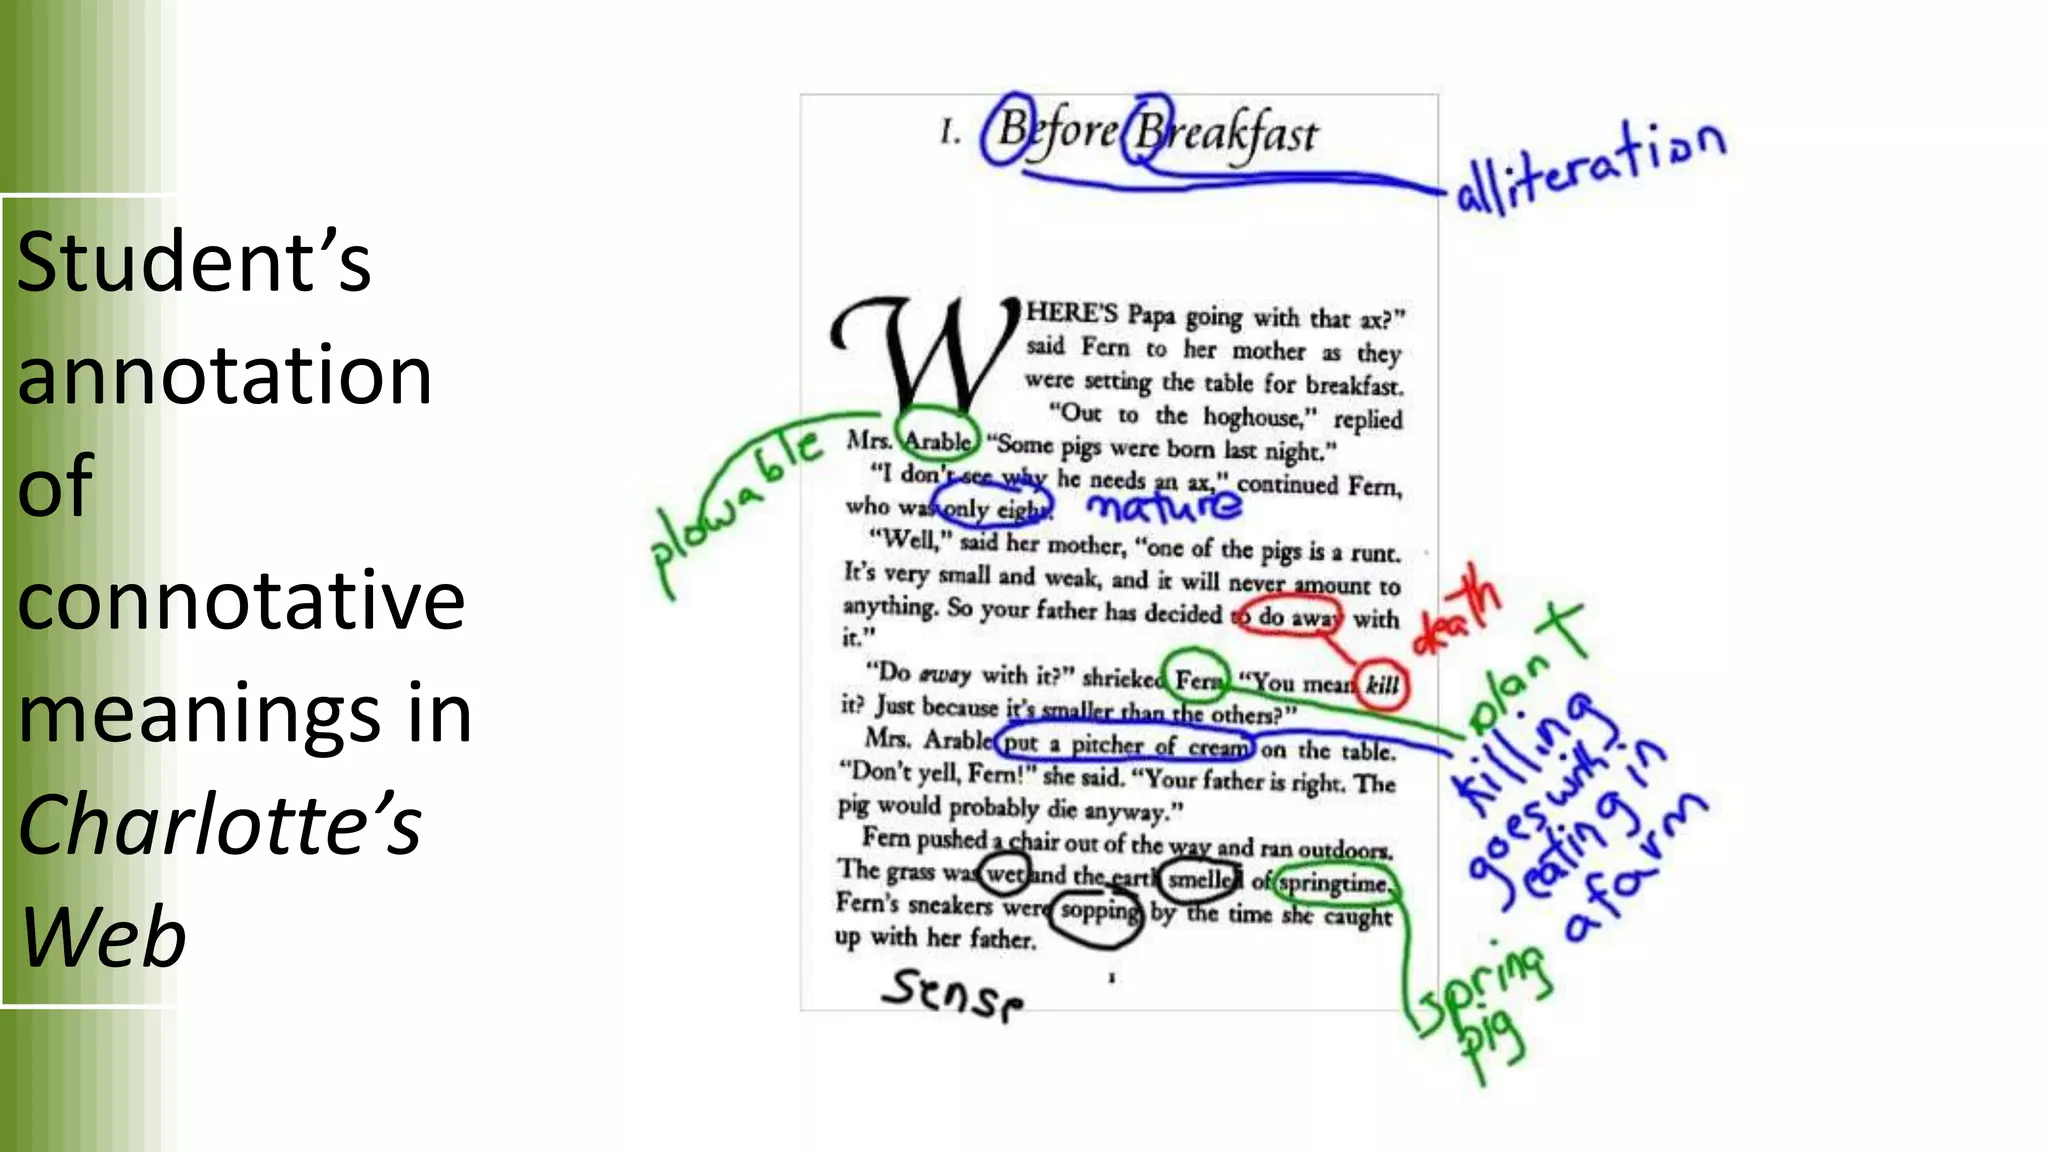 Student’s
annotation
of
connotative
meanings in
Charlotte’s
Web
I. Before Breakfast
alliteration
WHERE'S Papa going with that ax?”
said Fern to her mother as they
were setting the table for breakfast.
“Out to the hoghouse,” replied
Mrs. Arable. “Some pigs were born last night.”
“I don't see why he needs an ax,” continued Fern,
who was only eight.
plowable
nature
“Well,” said her mother, “one of the pigs is a runt.
It's very small and weak, and it will never amount to
anything. So your father has decided to do away with
it.”
death
“Do away with it?” shrieked Fern. “You mean kill
it? Just because it's smaller than the others?”
plant
Mrs. Arable put a pitcher of cream on the table.
“Don't yell, Fern!” she said. “Your father is right. The
pig would probably die anyway.”
killing
goes with
eating in
a farm
Fern pushed a chair out of the way and ran outdoors.
The grass was wet and the earth smelled of springtime.
Fern's sneakers were sopping by the time she caught
up with her father.
spring
pig
1
sense